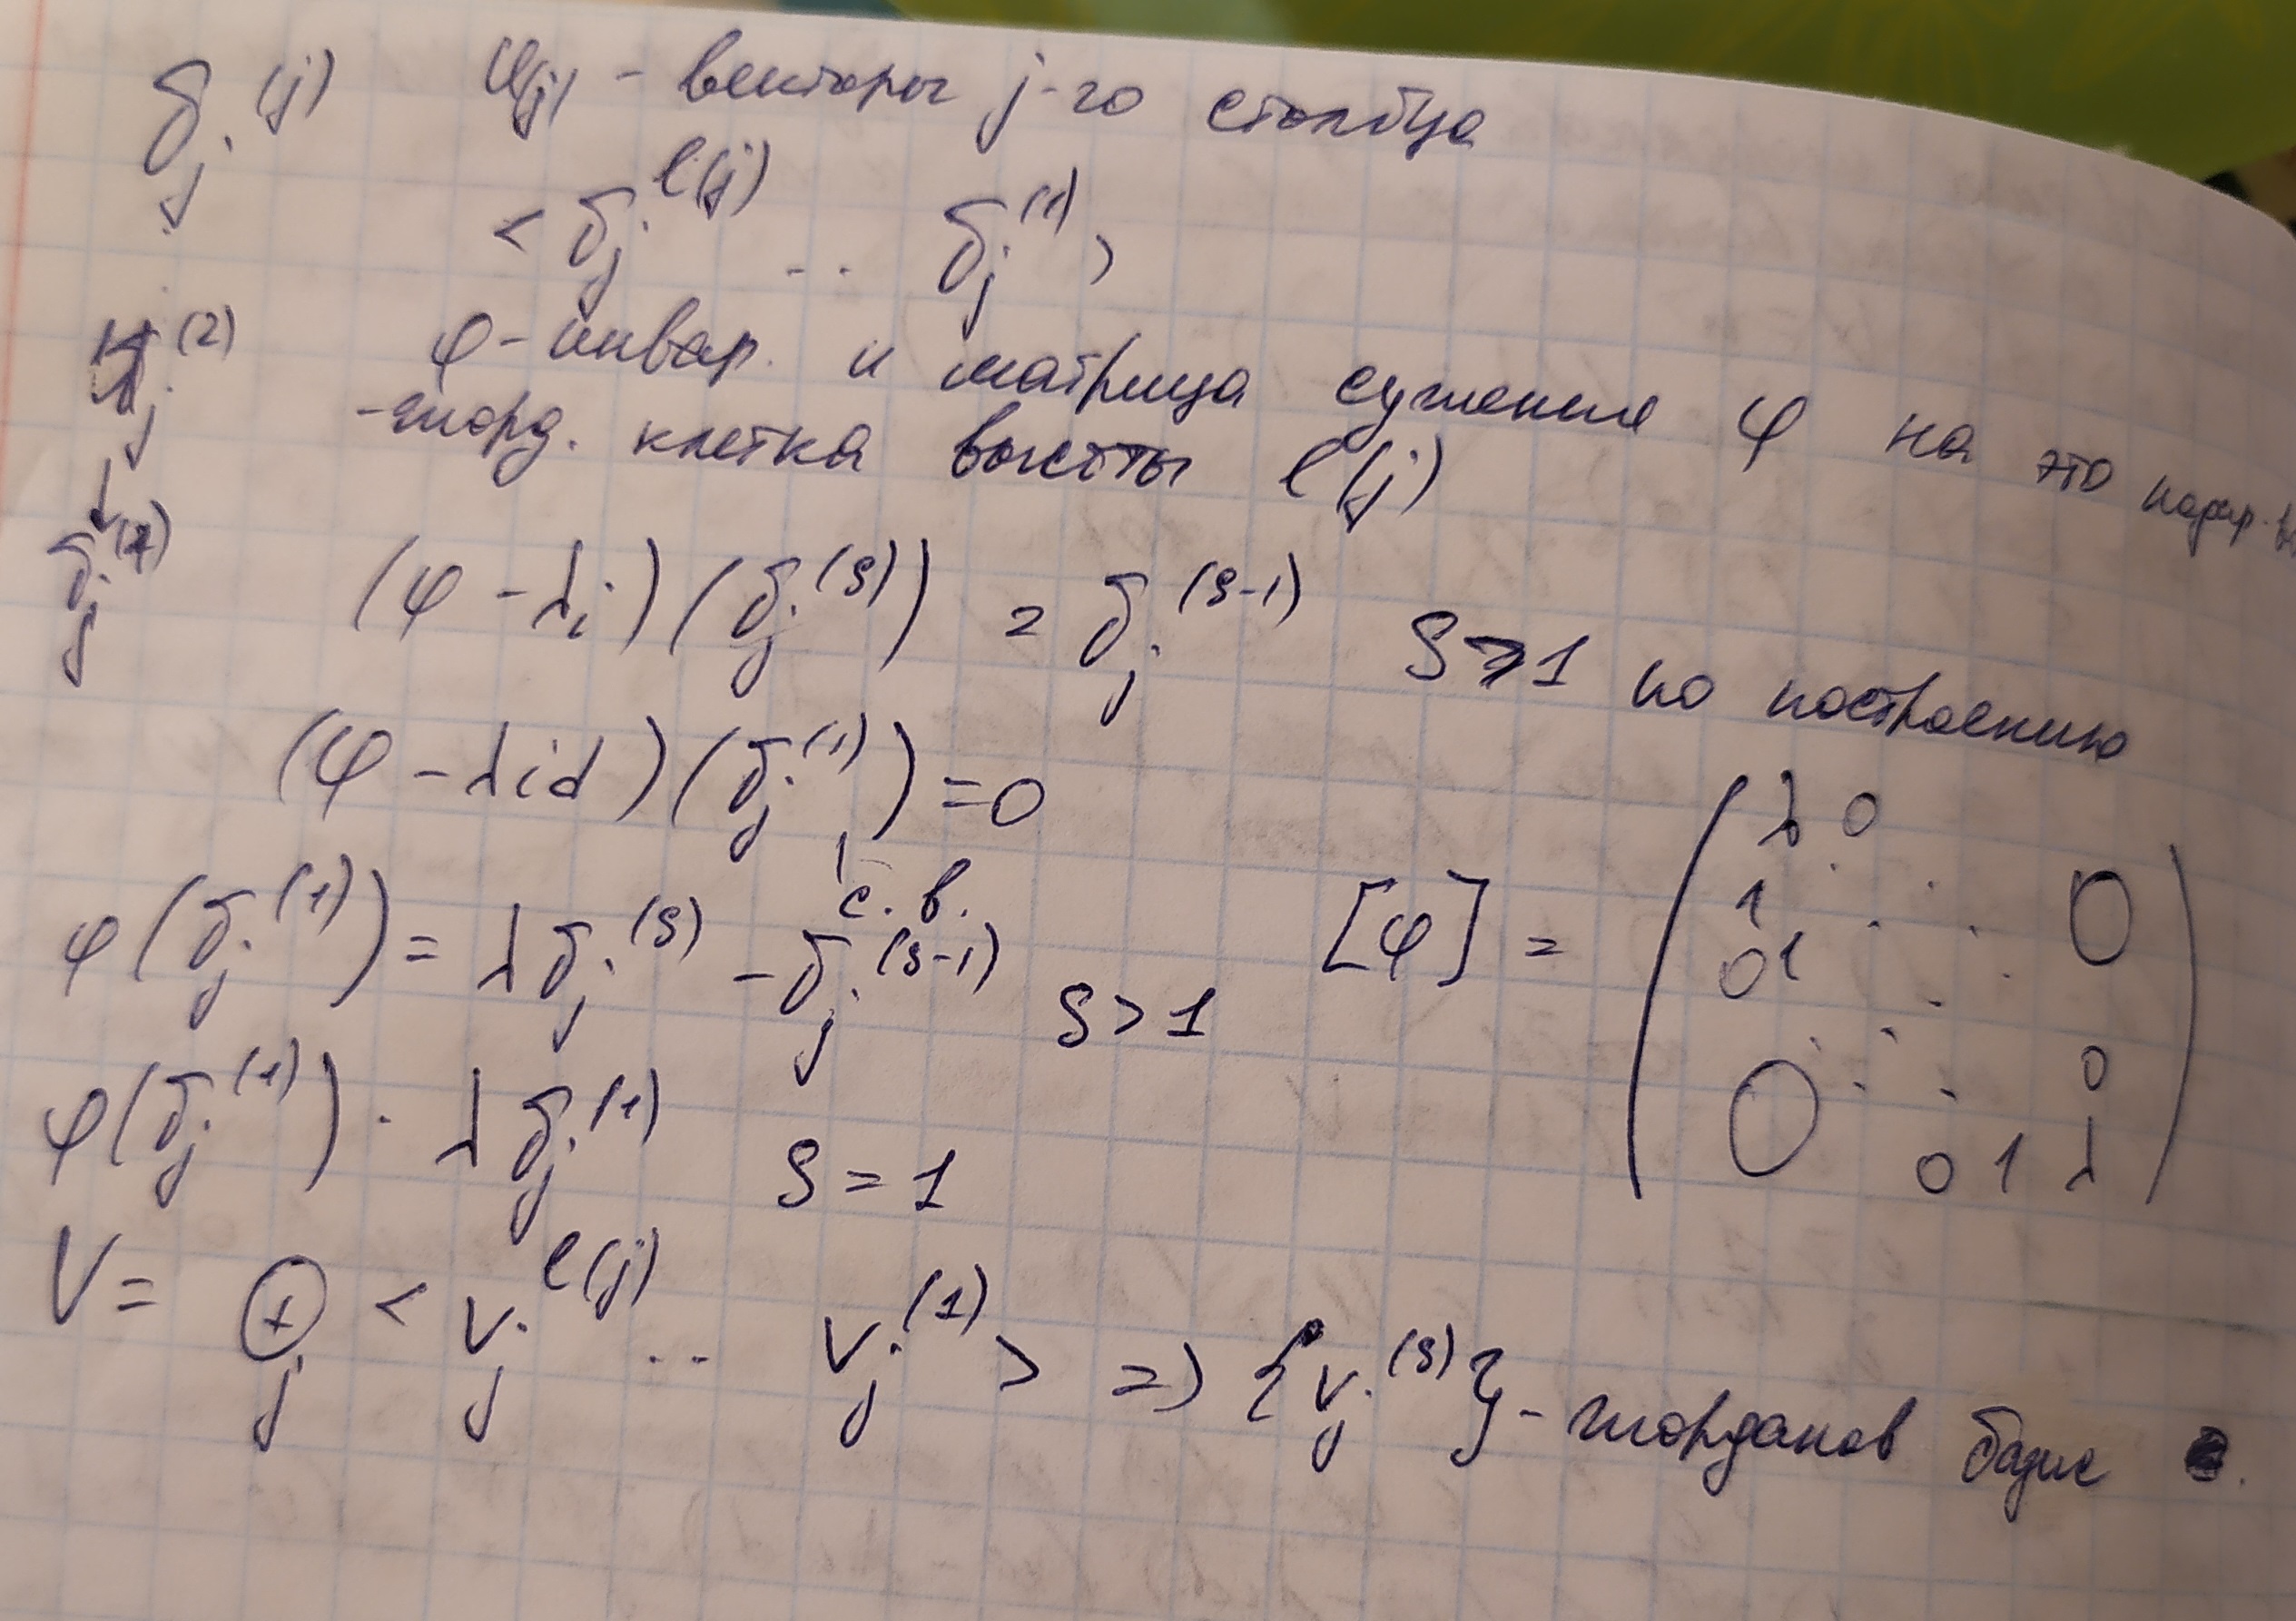 δ_j^(j) U(j) - векторы j-го столбца
< δ_j^l(j) .. δ_j^(1) >
δ_j^(2) φ-инвар. и матрица сужения φ на это
-жорд. клетка высоты l(j)
↓
δ_j^(1) (φ - λ_i)(δ_j^(s)) = δ_j^(s-1) s > 1 по построению
(φ - λid)(δ_j^(1)) = 0
с.в.
φ(δ_j^(1)) = λδ_j^(s) - δ_j^(s-1) s > 1
[φ] =
λ 0
1 . . 0
0 1 . .
. . . 0
0 . . 0 1 λ
φ(δ_j^(1)) . λδ_j^(1) s = 1
V = ⊕_j < v_j^l(j) .. v_j^(1) > => {v_j^(s)} - жорданов базис